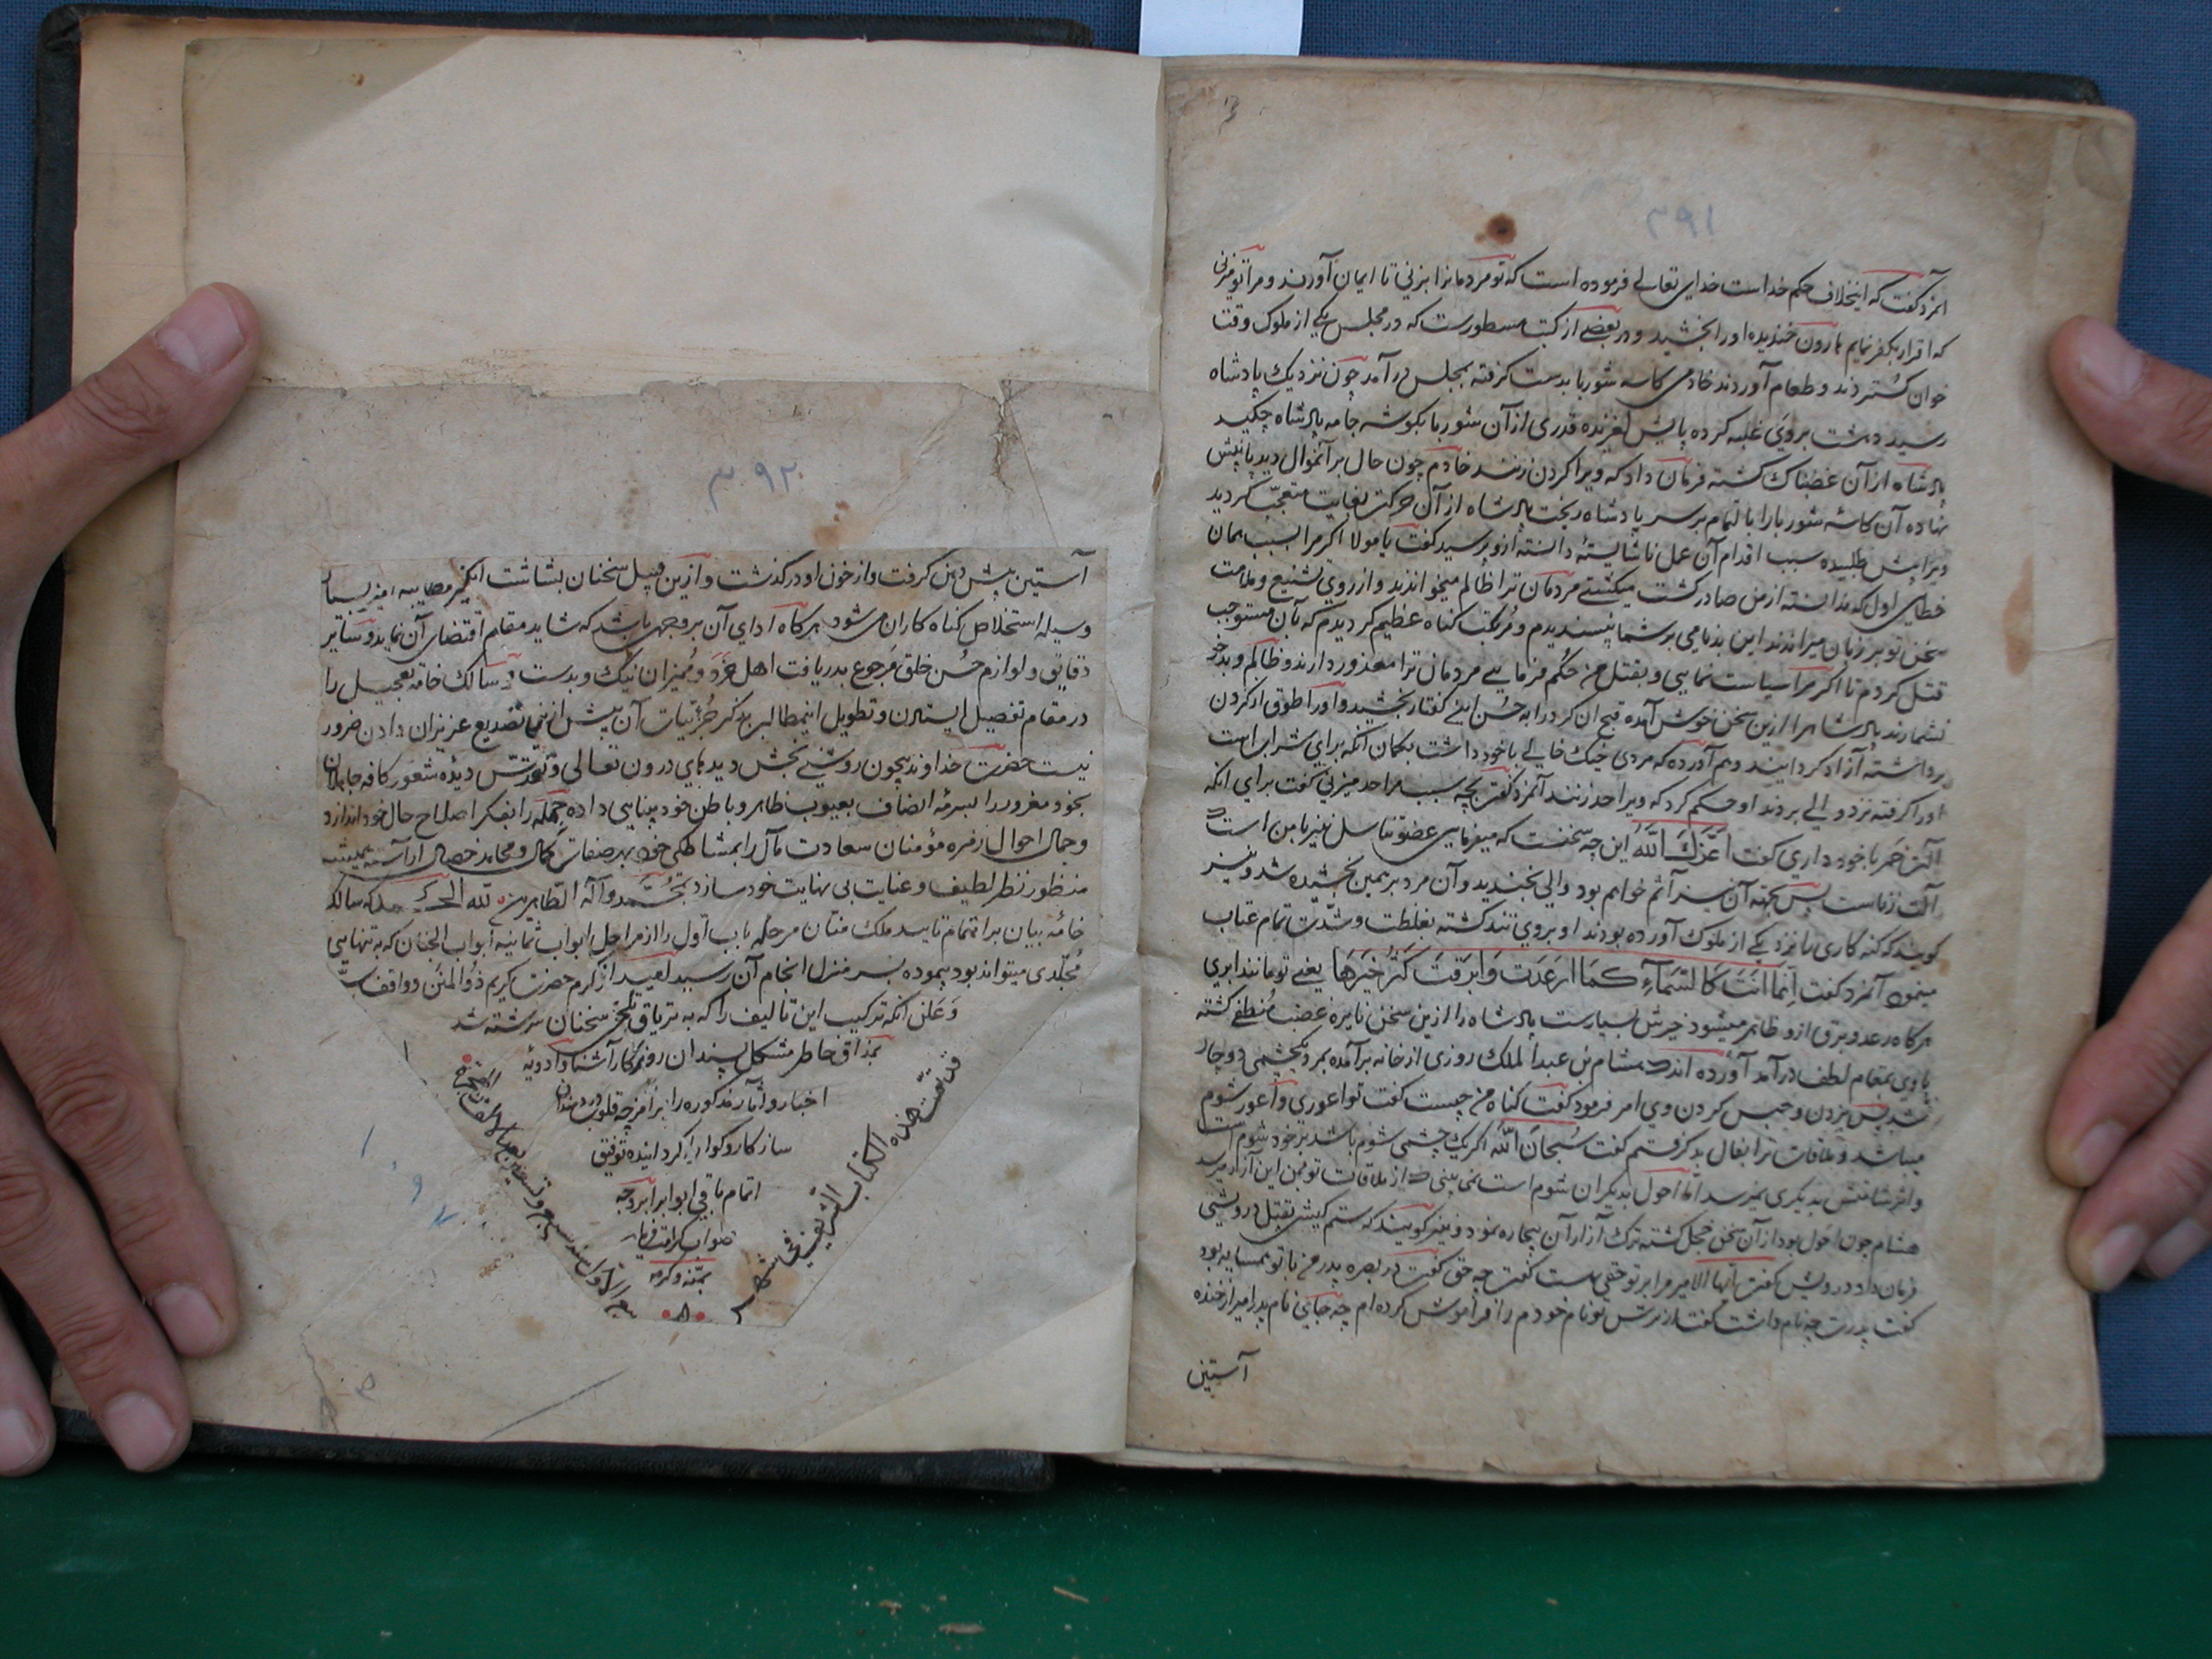 آنمرد گفت که اینخلاف حکم خداست خدای تعالی فرموده است که تو مردمانرا بزنی تا ایمان آورند و مرا تو میزنی
که اقرار بکفر نمایم هارون خندیده او را بخشید و در بعضی از کتب مسطورست که در مجلس یکی از ملوک وقت
خوان گستردند و طعام آوردند خادمی کاسه شوربا بدست گرفته بمجلس درآمد چون نزدیک پادشاه
رسید دهشت بروی غلبه کرده پایش لغزنده قدری از آن شوربا بگوشه جامه پادشاه چکید
پادشاه از آن غضبناک گشته فرمان داد که ویرا گردن زنند خادم چون حال بر آنمنوال دید پا پیش
نهاده آن کاسه شوربا را بالتمام بر سر پادشاه ریخت پادشاه از آن حرکت بغایت متعجب گردید
ویرا پیش طلبیده سبب اقدام آن عمل ناشایسته دانسته ازو پرسید گفت یا مولا اگر مرا بسبب همان
خطای اول که ندانسته از من صادر گشت میکشتی مردمان ترا ظالم میخواندند و از روی تشنیع و ملامت
سخن تو بر زبان میراندند این بدنامی بر شما نپسندیدم و مرتکب گناه عظیم گردیدم که بآن مستوجب
قتل کردم تا اگر مرا سیاست نمایی و بقتل من حکم فرمایی مردمان ترا معذور دارند و ظالم و بدخو
نشمارند پادشاه را ازین سخن خوش آمده قبح ان کردار به حسن اینگفتار بخشید و او را طوق از گردن
برداشته آزاد گردانیند و هم آورده که مردی خیک خالی با خود داشت بگمان آنکه برای شرابست
او را گرفته نزد والی بردند او حکم کرد که ویرا حد زنند آنمرد گفت بچه سبب مرا حد میزنی گفت برای آنکه
آلت خمر با خود داری گفت اعزک الله این چه سخنست که میفرمایی عضو تناسل نیز با من است
آلت زناست پس بجهته آن نیز آثم خواهم بود والی بخندید و آن مرد بر همین بخشیده شد و نیز
گویند که گنه کاری را نزد یکی از ملوک آورده بودند او بروی تند گشته بغلظت و شدت تمام عتاب
مینمود آنمرد گفت انما انت کالسماء کما ارعدت و ابرقت کثر خیرها یعنی تو مانند ابری
هر گاه رعد و برق ازو ظاهر میشود خیرش بسیارست پادشاه را ازین سخن نایره غضب منطفی گشته
با وی بمقام لطف درآمد آورده اند هشام بن عبد الملک روزی از خانه برآمده بمرد یکچشمی دوچار
شد پس بزدن و حبس کردن وی امر فرمود گفت گناه من چیست گفت تو اعوری و اعور شوم
میباشد و ملاقات ترا بفال بد گرفتم گفت سبحان الله اگر یک چشمی شوم باشد بر خود شوم است
و اثر شامتش بدیگری نمیرسد اما احول بدیگران شوم است نمی بینی که از ملاقات تو بمن این آزار رسید
هشام چون احول بود از آن سخن خجل گشته ترک آزار آن بیچاره نمود و نیز گویند که ستم کیشی بقتل درویشی
فرمان داد درویش گفت ایها الامیر مرا بر تو حقی هست گفت چه حق گفت در بصره پدر من با تو همسایه بود
گفت پدرت چه نام داشت گفت از ترس تو نام خودم را فراموش کرده ام چه جای نام پدر امیر از خنده
آستین
۳۹۲
آستین پیش دهن گرفت و از خون او درگذشت و ازین قبیل سخنان بشاشت انگیز مطایبه آمیز بسیار
وسیله استخلاص گناه کاران می شود هر گاه ادای آن بر وجهی باشد که شاید مقام اقتضای آن نماید و سایر
دقایق و لوازم حسن خلق مرجوع بدریافت اهل خرد و ممیزان نیک و بدست و سالک خامه تعجیل را
در مقام تفصیل ایستادن و تطویل اینمطالب بذکر جزئیات آن بیش از ینها تصدیع عزیزان دادن ضرور
نیست حضرت خداوند بیچون روشنی بخش دیدهای درون تعالی و تقدس دیده شعور کافه جاهلان
بخود مغرور را بسرمه انصاف بعیوب ظاهر و باطن خود بینایی داده جمله را بفکر اصلاح حال خود اندازد
و جمال احوال زمره مؤمنان سعادت مآل را بمشاطگی خود بهر صفات کمال و محامد خصال آراسته همیشه
منظور نظر لطیف و عنایت بی نهایت خود سازد بمحمد و آله الطاهرین لله الحمد که سالک
خامه بیان بر اهتمام تایید ملک منان مرحله باب اول را از مراحل ابواب ثمانیه ابواب الجنان که به تنهایی
مجلدی میتواند بود پیموده بسر منزل انجام آن رسید امید از کرم حضرت کریم ذو المنن و واقف
و علن آنکه ترکیب این تالیف را که به تریاق تلخی سخنان سرشته شد
بمذاق خاطر مشکل پسندان روزگار آشنا و ادویه
اخبار و آثار مذکوره را بر مزاج قلوب دردمندان
سازگار و گوارا گرداینده توفیق
اتمام باقی ابواب را بر وجه
صواب کرامت فرماید
بمنه و کرمه
قد تمت هذه الکتاب الشریف فی